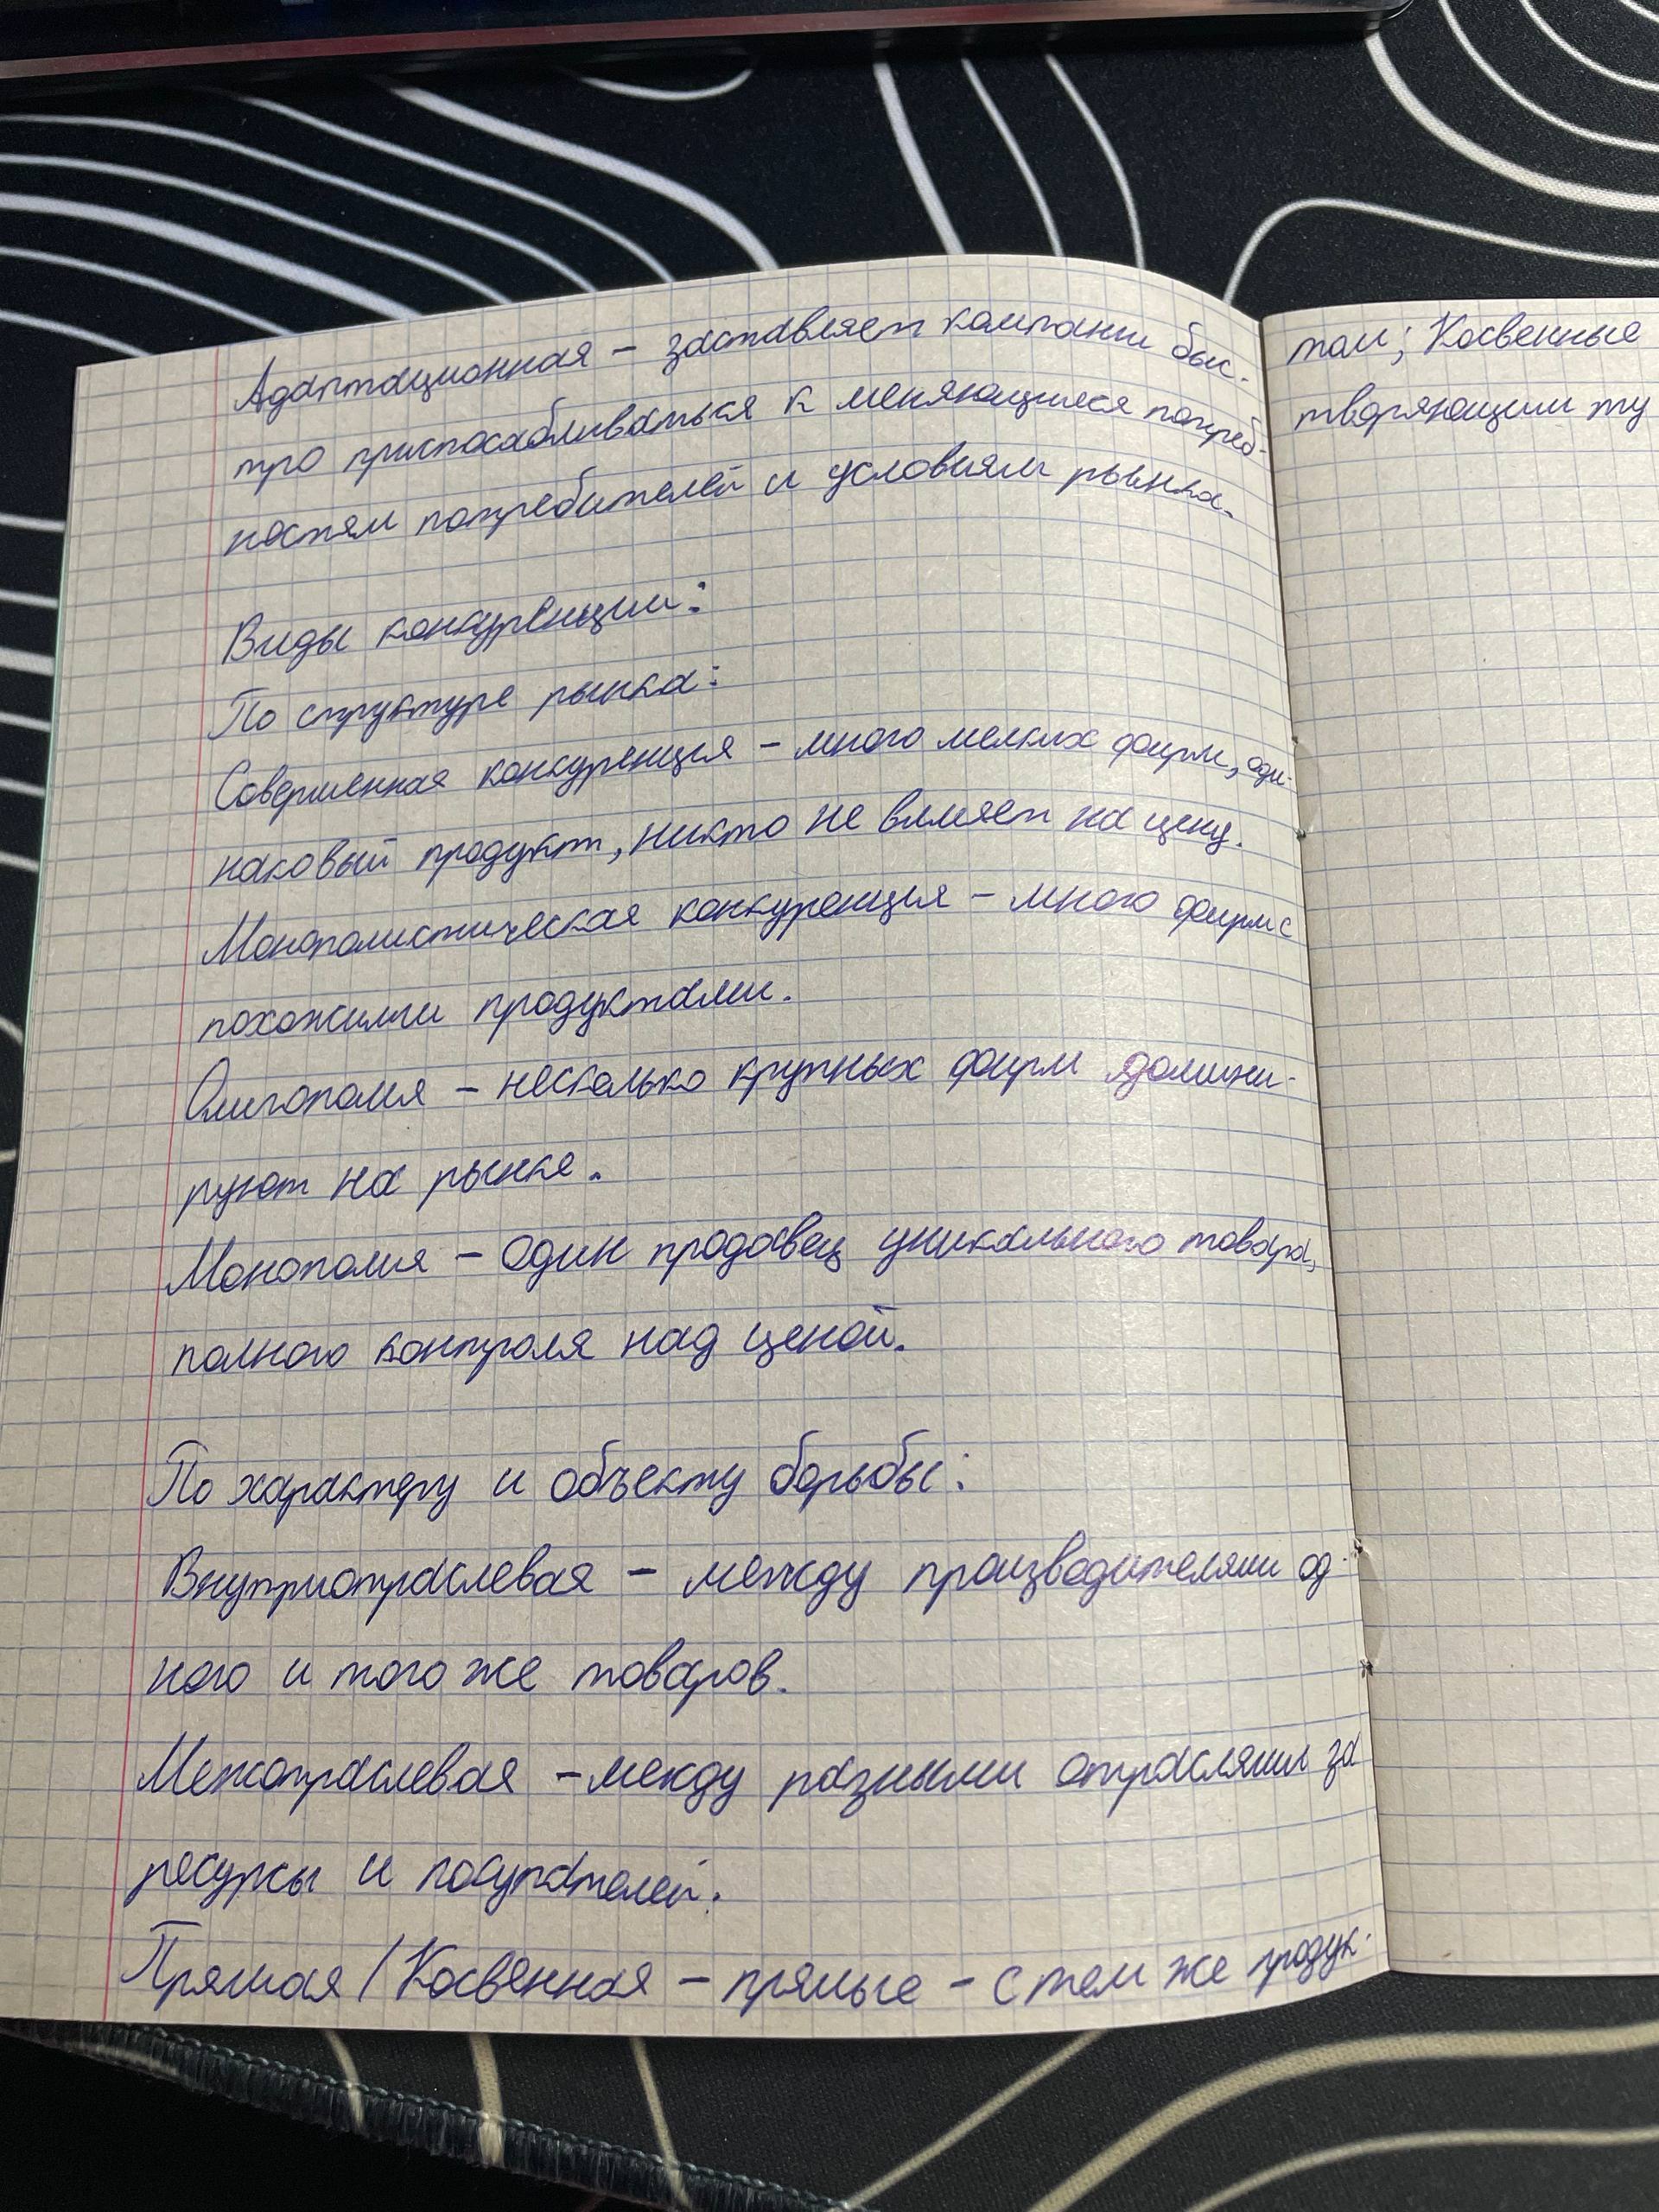 Адаптационная – заставляет компании быс-
тро приспосабливаться к меняющимся потреб-
ностям потребителей и условиям рынка.
Виды конкуренции:
По структуре рынка:
Совершенная конкуренция – много мелких фирм, оди-
наковый продукт, никто не влияет на цену.
Монополистическая конкуренция – много фирм с
похожими продуктами.
Олигополия – несколько крупных фирм домини-
руют на рынке.
Монополия – один продавец уникального товара,
полного контроля над ценой.
По характеру и объекту борьбы:
Внутриотраслевая – между производителями од-
ного и того же товаров.
Межотраслевая – между разными отраслями за
ресурсы и покупателей.
Прямая / Косвенная – прямые – с тем же продук-
том; Косвенные
творяющим ту